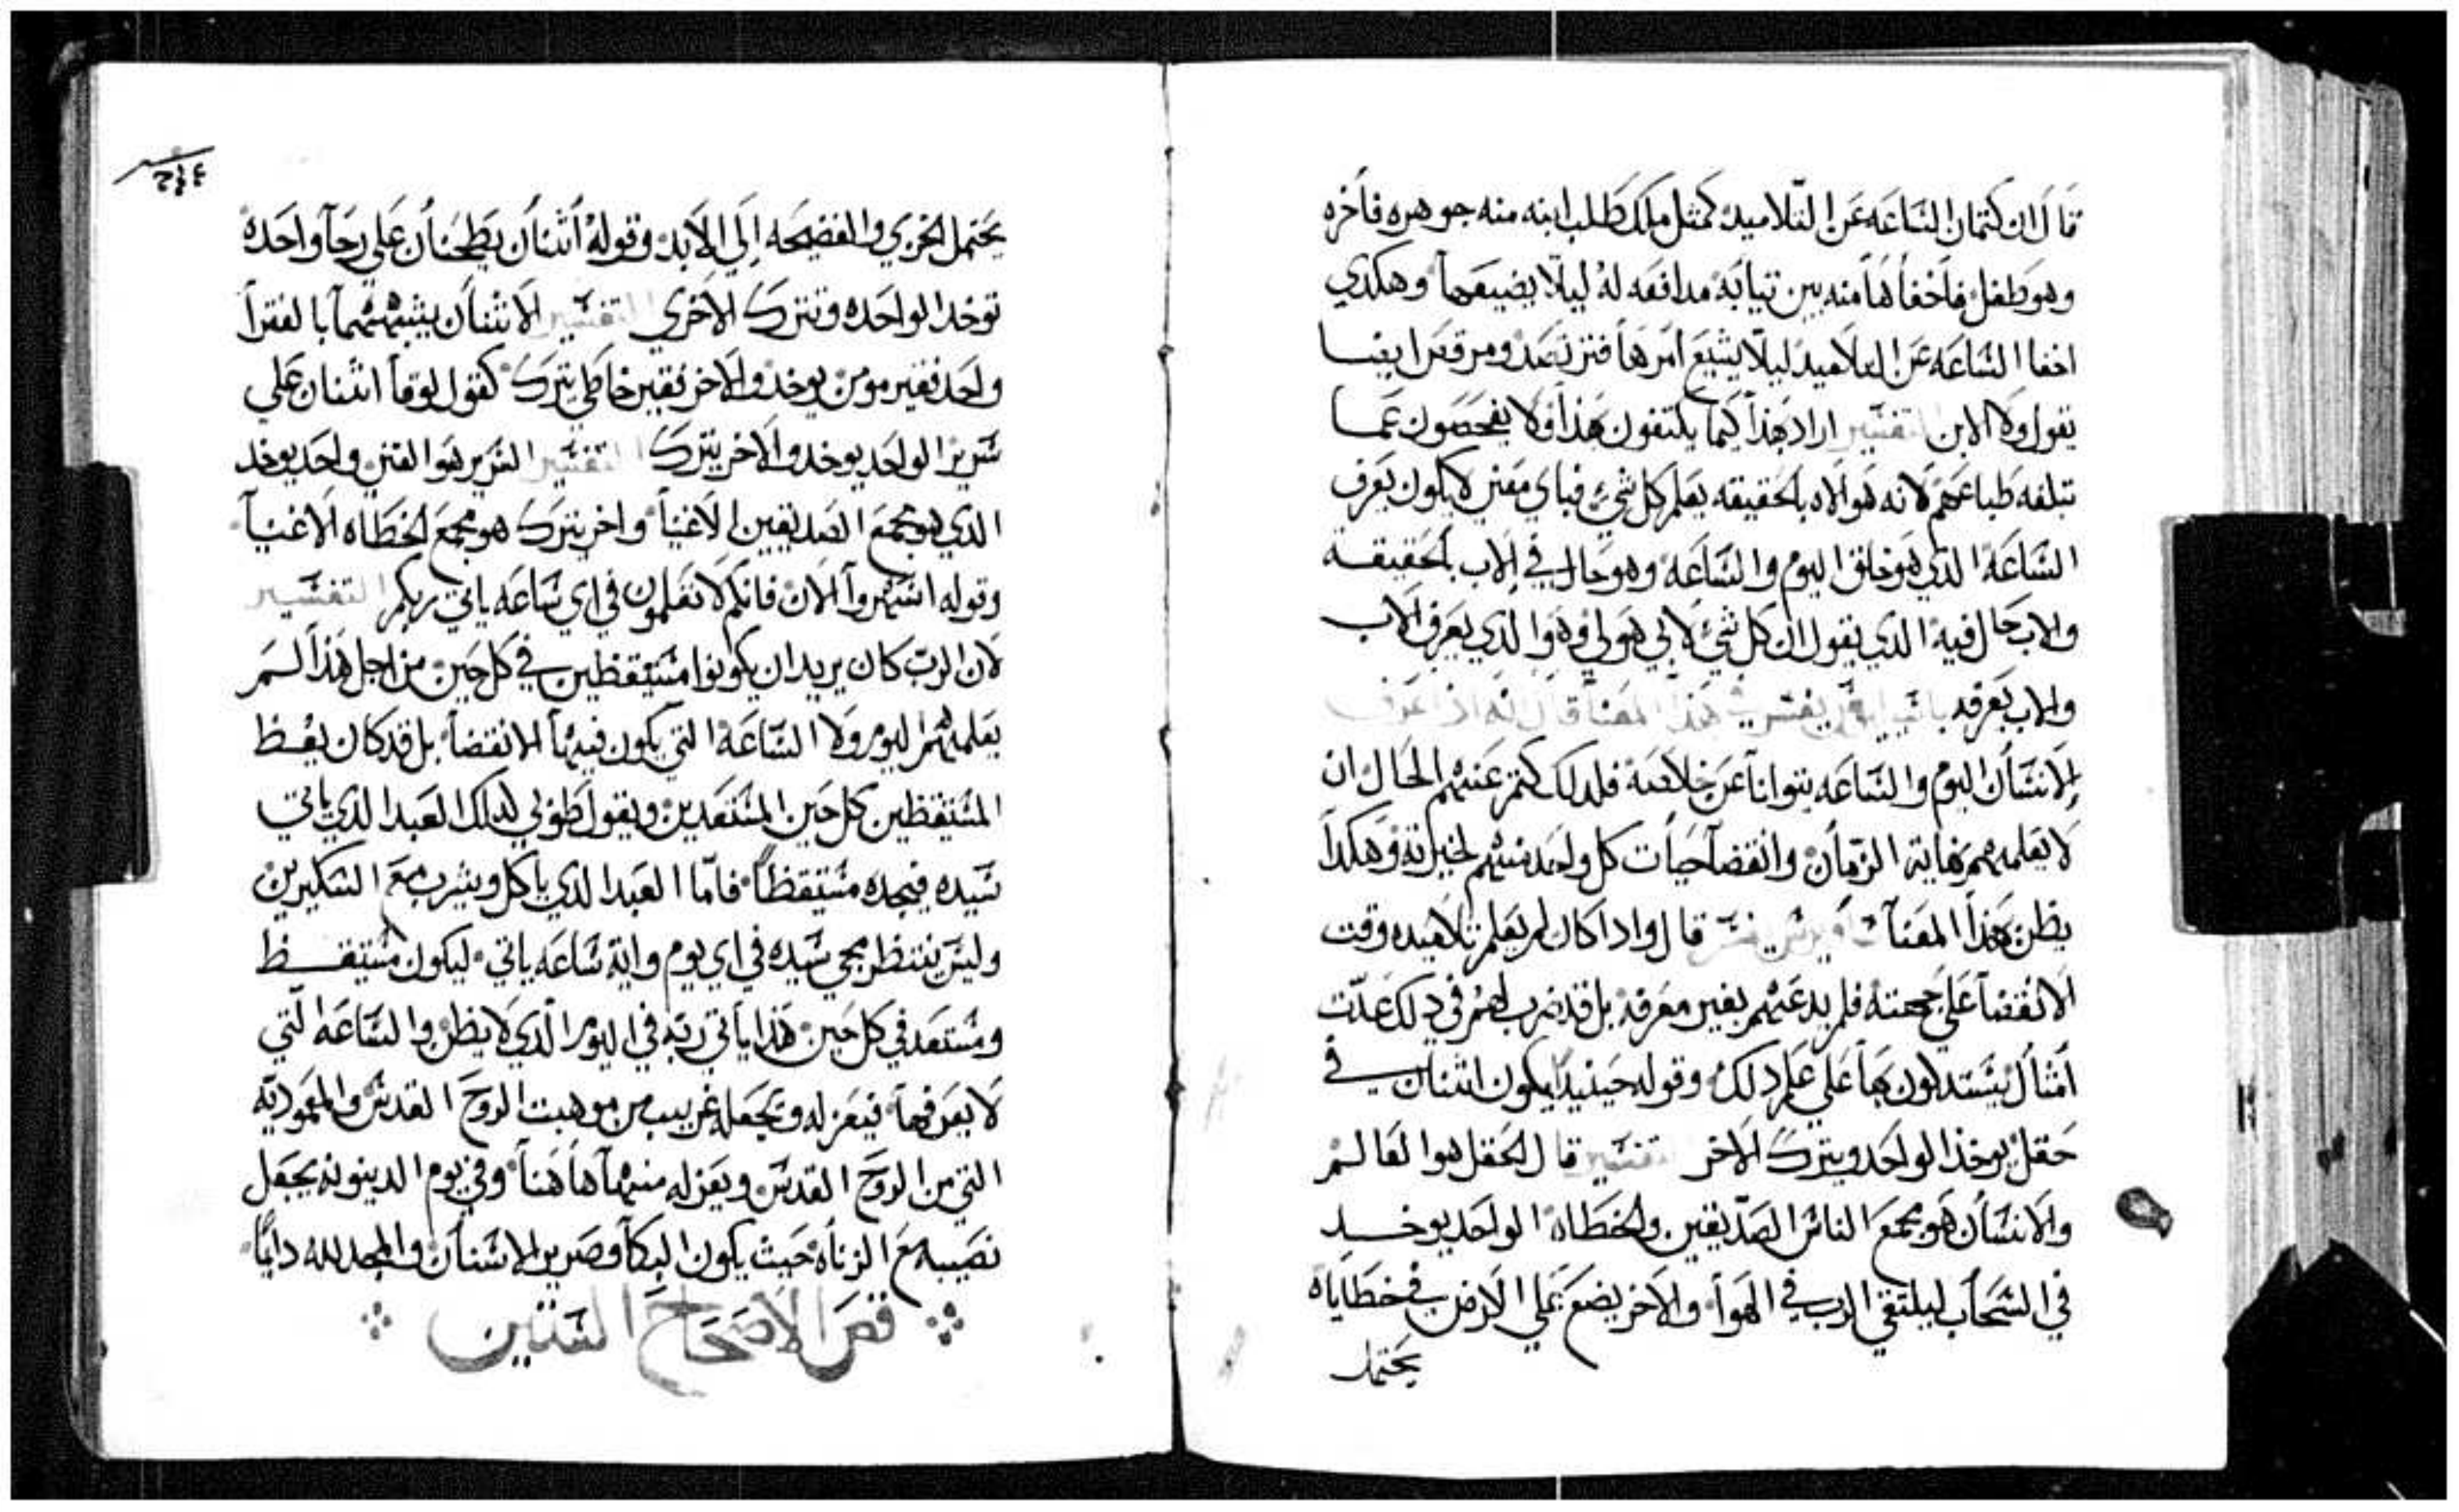 قال ان كتمان الساعه عن التلاميد كمثل ملك طلب ابنه منه جوهره فاخره
وهو طفل فاخفاها منه بين تيابه مدافعه له ليلا يضيعها وهكدي
اخفا الساعه عن التلاميد ليلا يشيع امرها
يقول ولا الابن التفسير اراد بهذا كيما يكتفون بهذا ولا يفحصون عما
تبلغه طباعهم لانه هو الاه بالحقيقه يعلم كل شي فباي معني لا يكون يعرف
الساعه الدي هو خالق اليوم والساعه وهو حال في الاب بالحقيقه
والاب حال فيه الدي يقول ان كل شي لابي هو لي وهو الدي يعرف الاب
والاب يعرفه يفسر هذا المعنا قال انه اذا عرف
الانسان اليوم والساعه يتوانا عن خلاصه فلدلك كتم عنهم الحال ان
لا يعلمهم نهاية الزمان وانقضا حيات كل واحد منهم لخيرته وهكدا
يظن بهذا المعنا قال وادا كان لم يعلم تلاميده وقت
الانقضا على جهته فلم يدعهم بغير معرفه بل قد ضرب لهم في دلك عدت
أمثال يستدلون بها علي علم دلك وقوله حينيد يكون اتنان في
حقل يوخذ الواحد ويترك الاخر تفسير قال الحقل هو العالم
والانسان هو مجمع الناس الصديقين والخطاه الواحد يوخد
في السحاب ليلتقي الرب في الهوا والاخر يضع علي الارض في خطاياه
يحتمل
يحتمل الخزي والفضيحه الي الابد وقوله أتنان يطحنان علي رحا واحده
توخد الواحده وتترك الاخري التفسير الاتنان يشبههما بالفقرا
واحد فقير مومن يوخد والاخر فقير خاطي يترك كقول لوقا اتنان علي
سرير الواحد يوخد والاخر يترك التفسير السرير هو الغني واحد يوخد
الدي هو مجمع الصديقين الاغنيا واخر يترك هو مجمع الخطاه الاغنيا
وقوله اسهروا الان فانكم لا تعلمون في اي ساعه ياتي ربكم التفسير
لان الرب كان يريد ان يكونوا مستيقظين في كل حين من اجل هذا لم
يعلمهم اليوم ولا الساعة التي يكون فيها الانقضا بل قد كان يعظ
المستيقظين كل حين المستعدين ويقول طوبي لدلك العبد الدي ياتي
سيده فيجده مستيقظا فاما العبد الدي ياكل ويشرب مع السكيرين
وليس ينتظر مجي سيده في اي يوم واية ساعه ياتي ليكون مستيقظ
ومستعد في كل حين هذا ياتي ربه في اليوم الدي لا يظن والساعه التي
لا يعرفها فيعزله ويجعله غريب من موهبت الروح القدس والمعموديه
التي من الروح القدس ويعزله منهما هاهنا وفي يوم الدينونه يجعل
نصيبه مع الزناه حيث يكون البكا وصرير الاسنان والمجد لله دايما
فص الاصحاح الستين